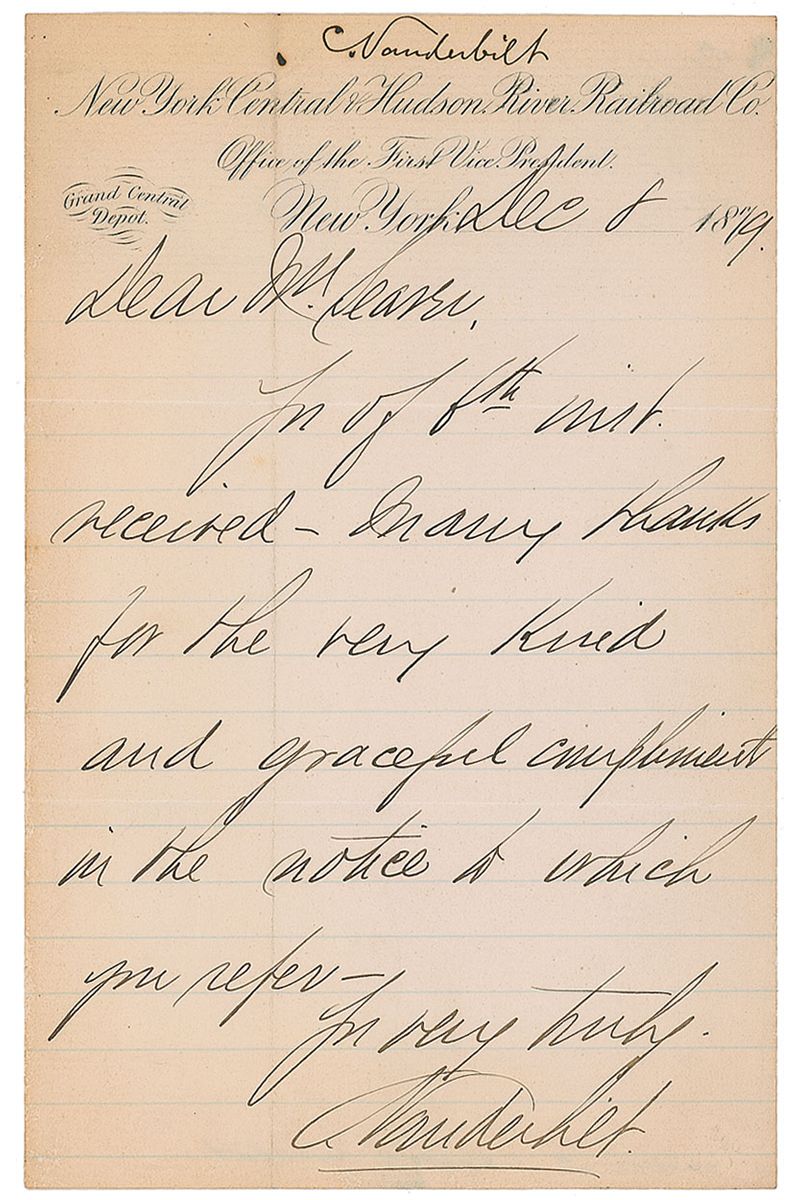 C. Vanderbilt
New York Central & Hudson River Railroad Co.
Office of the First Vice President.
Grand Central
Depot.
New York, Dec 8 1879.
Dear Mr.
Yr of 6th inst.
received - Many thanks
for the very kind
and graceful compliment
in the notice to which
you refer -
Yr very truly.
C. Vanderbilt.